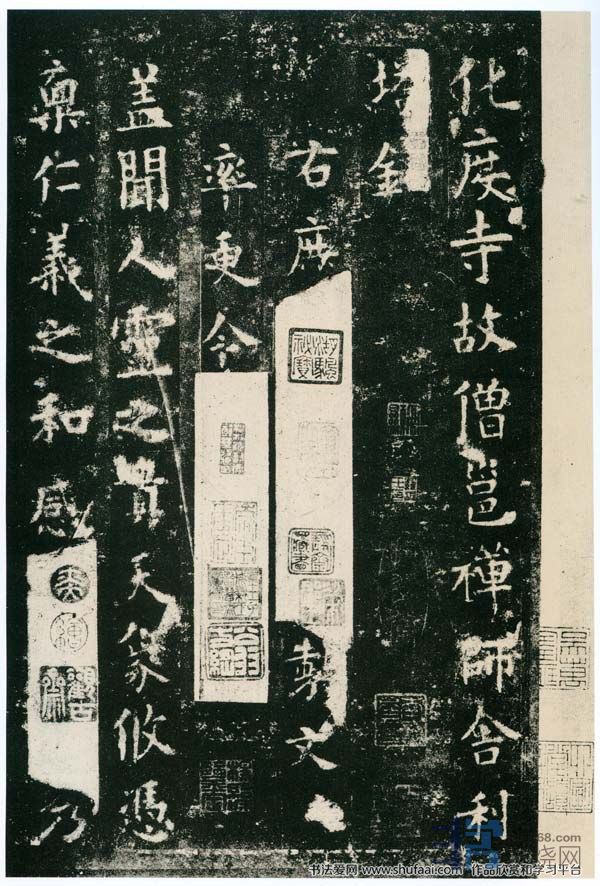 化度寺故僧邕禪師舍利
塔銘
右庶 製文
率更令
蓋聞人靈之貴天象攸憑
稟仁義之和感 乃
68.com
书法爱网 www.shufaai.com 作品欣赏和学习平台